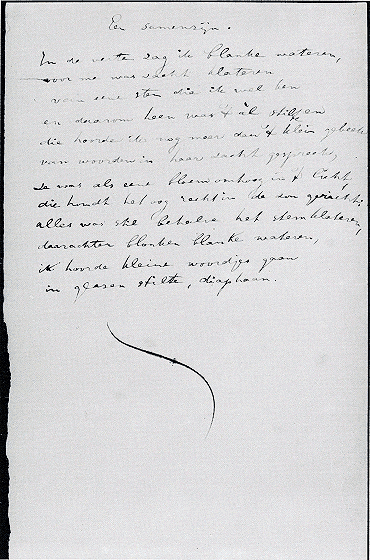 Een samenzijn.
In de verte zag ik blanke wateren,
voor me was zacht klateren
van eene stem die ik wel ken
en daarom heen was 't al stil, en
die hoorde ik nog meer dan 't klein
van woorden in haar zacht
Ze was als eene bloem omhoog in 't licht,
die houdt het oog recht in de zon gericht:
alles was stil behalve het stemklateren,
daarachter blonken blanke wateren,
ik hoorde kleine woordjes gaan
in glazen stilte, diaphaan.